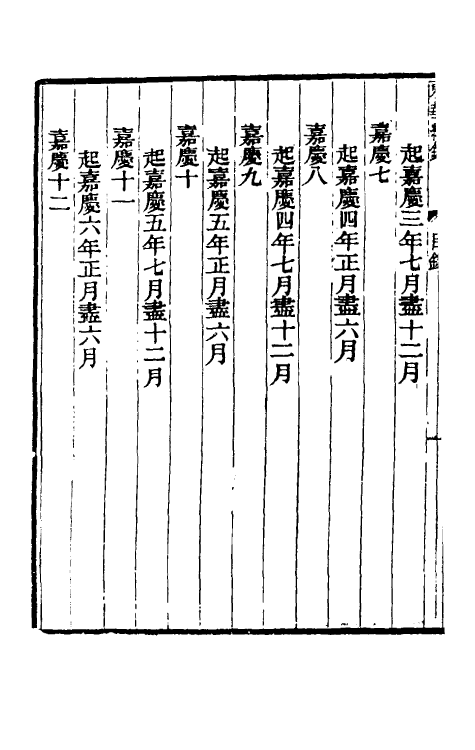 目錄
起嘉慶三年七月盡十二月
嘉慶七
起嘉慶四年正月盡六月
嘉慶八
起嘉慶四年七月盡十二月
嘉慶九
起嘉慶五年正月盡六月
嘉慶十
起嘉慶五年七月盡十二月
嘉慶十一
起嘉慶六年正月盡六月
嘉慶十二